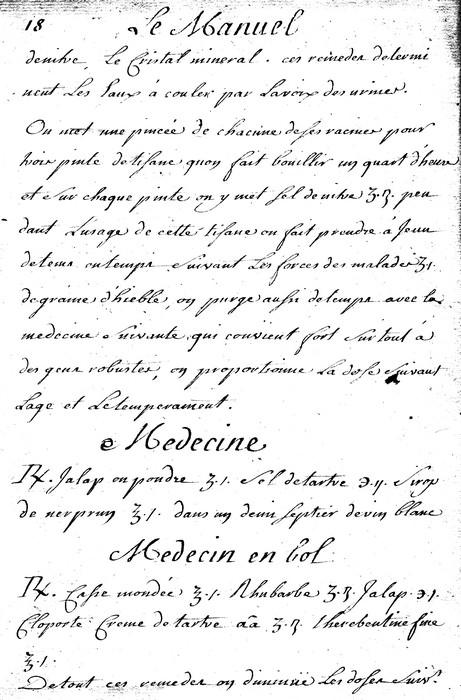 18 Le Manuel
denitre, Le Cristal mineral. ces remedes determi
nent Les Eaux à couler par Lavoix des urines.
On met une pincée de chacune de ses racines pour
trois pinte de tisane quon fait bouillir un quart d'heure
et sur chaque pinte on y met sel de nitre ʒ.ß. pen
dant Lusage de cette tisane on fait prendre à Jeun
de tems entemps suivant Les forces des malades ʒ1.
de graine d'hieble, on purge aussi detemps avec la
medecine suivante qui convient fort surtout à
des gens robustes, on proportionne La dose suivant
Lage et Le temperament.
Medecine
℞. Jalap en poudre ʒ.1. Sel detartre ℈.ij. Sirop
de nerprun ℥.1. dans un demi septier devin blanc
Medecin en bol
℞. Casse mondée ℥.1. Rhubarbe ʒ.ß. Jalap ℈.1.
Cloporte Creme de tartre aã ʒ.ß. therebentine fine
ʒ.1.
De tout ces remedes on diminüe Les doses suiv.